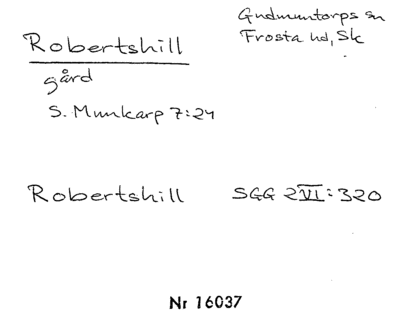 Gudmuntorps sn
Frosta hd, Sk
Robertshill
gård
S. Munkarp 7:24
Robertshill SGG 2VI:320
Nr 16037